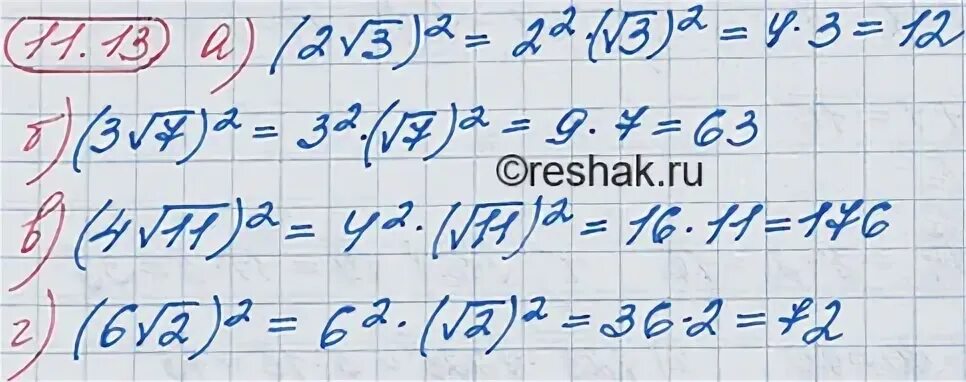 11.13 а) (2√3)² = 2²·(√3)² = 4·3 = 12
б) (3√7)² = 3²·(√7)² = 9·7 = 63
©reshak.ru
в) (4√11)² = 4²·(√11)² = 16·11 = 176
г) (6√2)² = 6²·(√2)² = 36·2 = 72